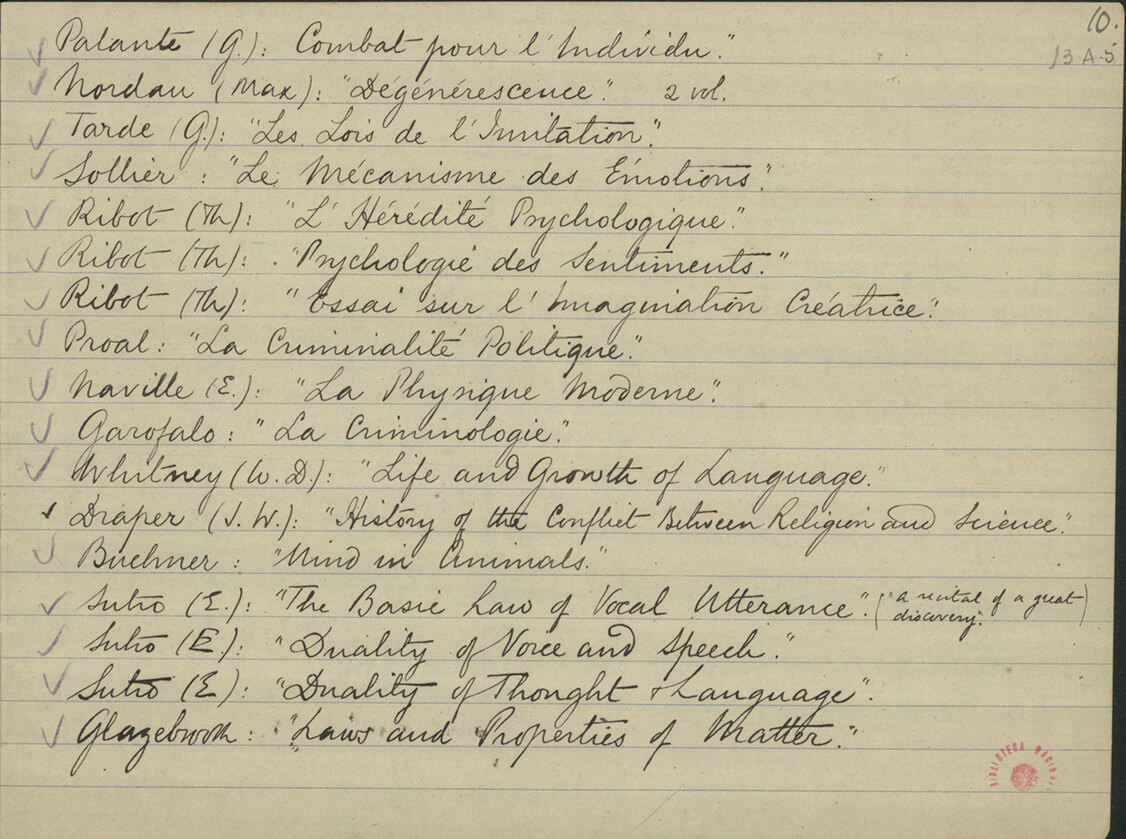 10.
13 A-5
✓ Palante (G.): Combat pour l'Individu."
✓ Nordau (Max): "Dégénérescence". 2 vol.
✓ Tarde (G.): "Les Lois de l'Imitation".
✓ Sollier : "Le Mécanisme des Émotions".
✓ Ribot (Th): "L'Hérédité Psychologique."
✓ Ribot (Th): "Psychologie des Sentiments."
✓ Ribot (Th): "Essai sur l'Imagination Créatrice".
✓ Proal: "La Criminalité Politique".
✓ Naville (E.): "La Physique Moderne".
✓ Garofalo: "La Criminologie".
✓ Whitney (W. D.): "Life and Growth of Language."
✓ Draper (J. W.): "History of the Conflict Between Religion and Science".
✓ Buchner: "Mind in Animals."
✓ Sutro (E.): "The Basic Law of Vocal Utterance". ("a recital of a great discovery".)
✓ Sutro (E.): "Duality of Voice and Speech."
✓ Sutro (E): "Duality of Thought & Language".
✓ Glazebrook: "Laws and Properties of Matter."
BIBLIOTECA NACIONAL